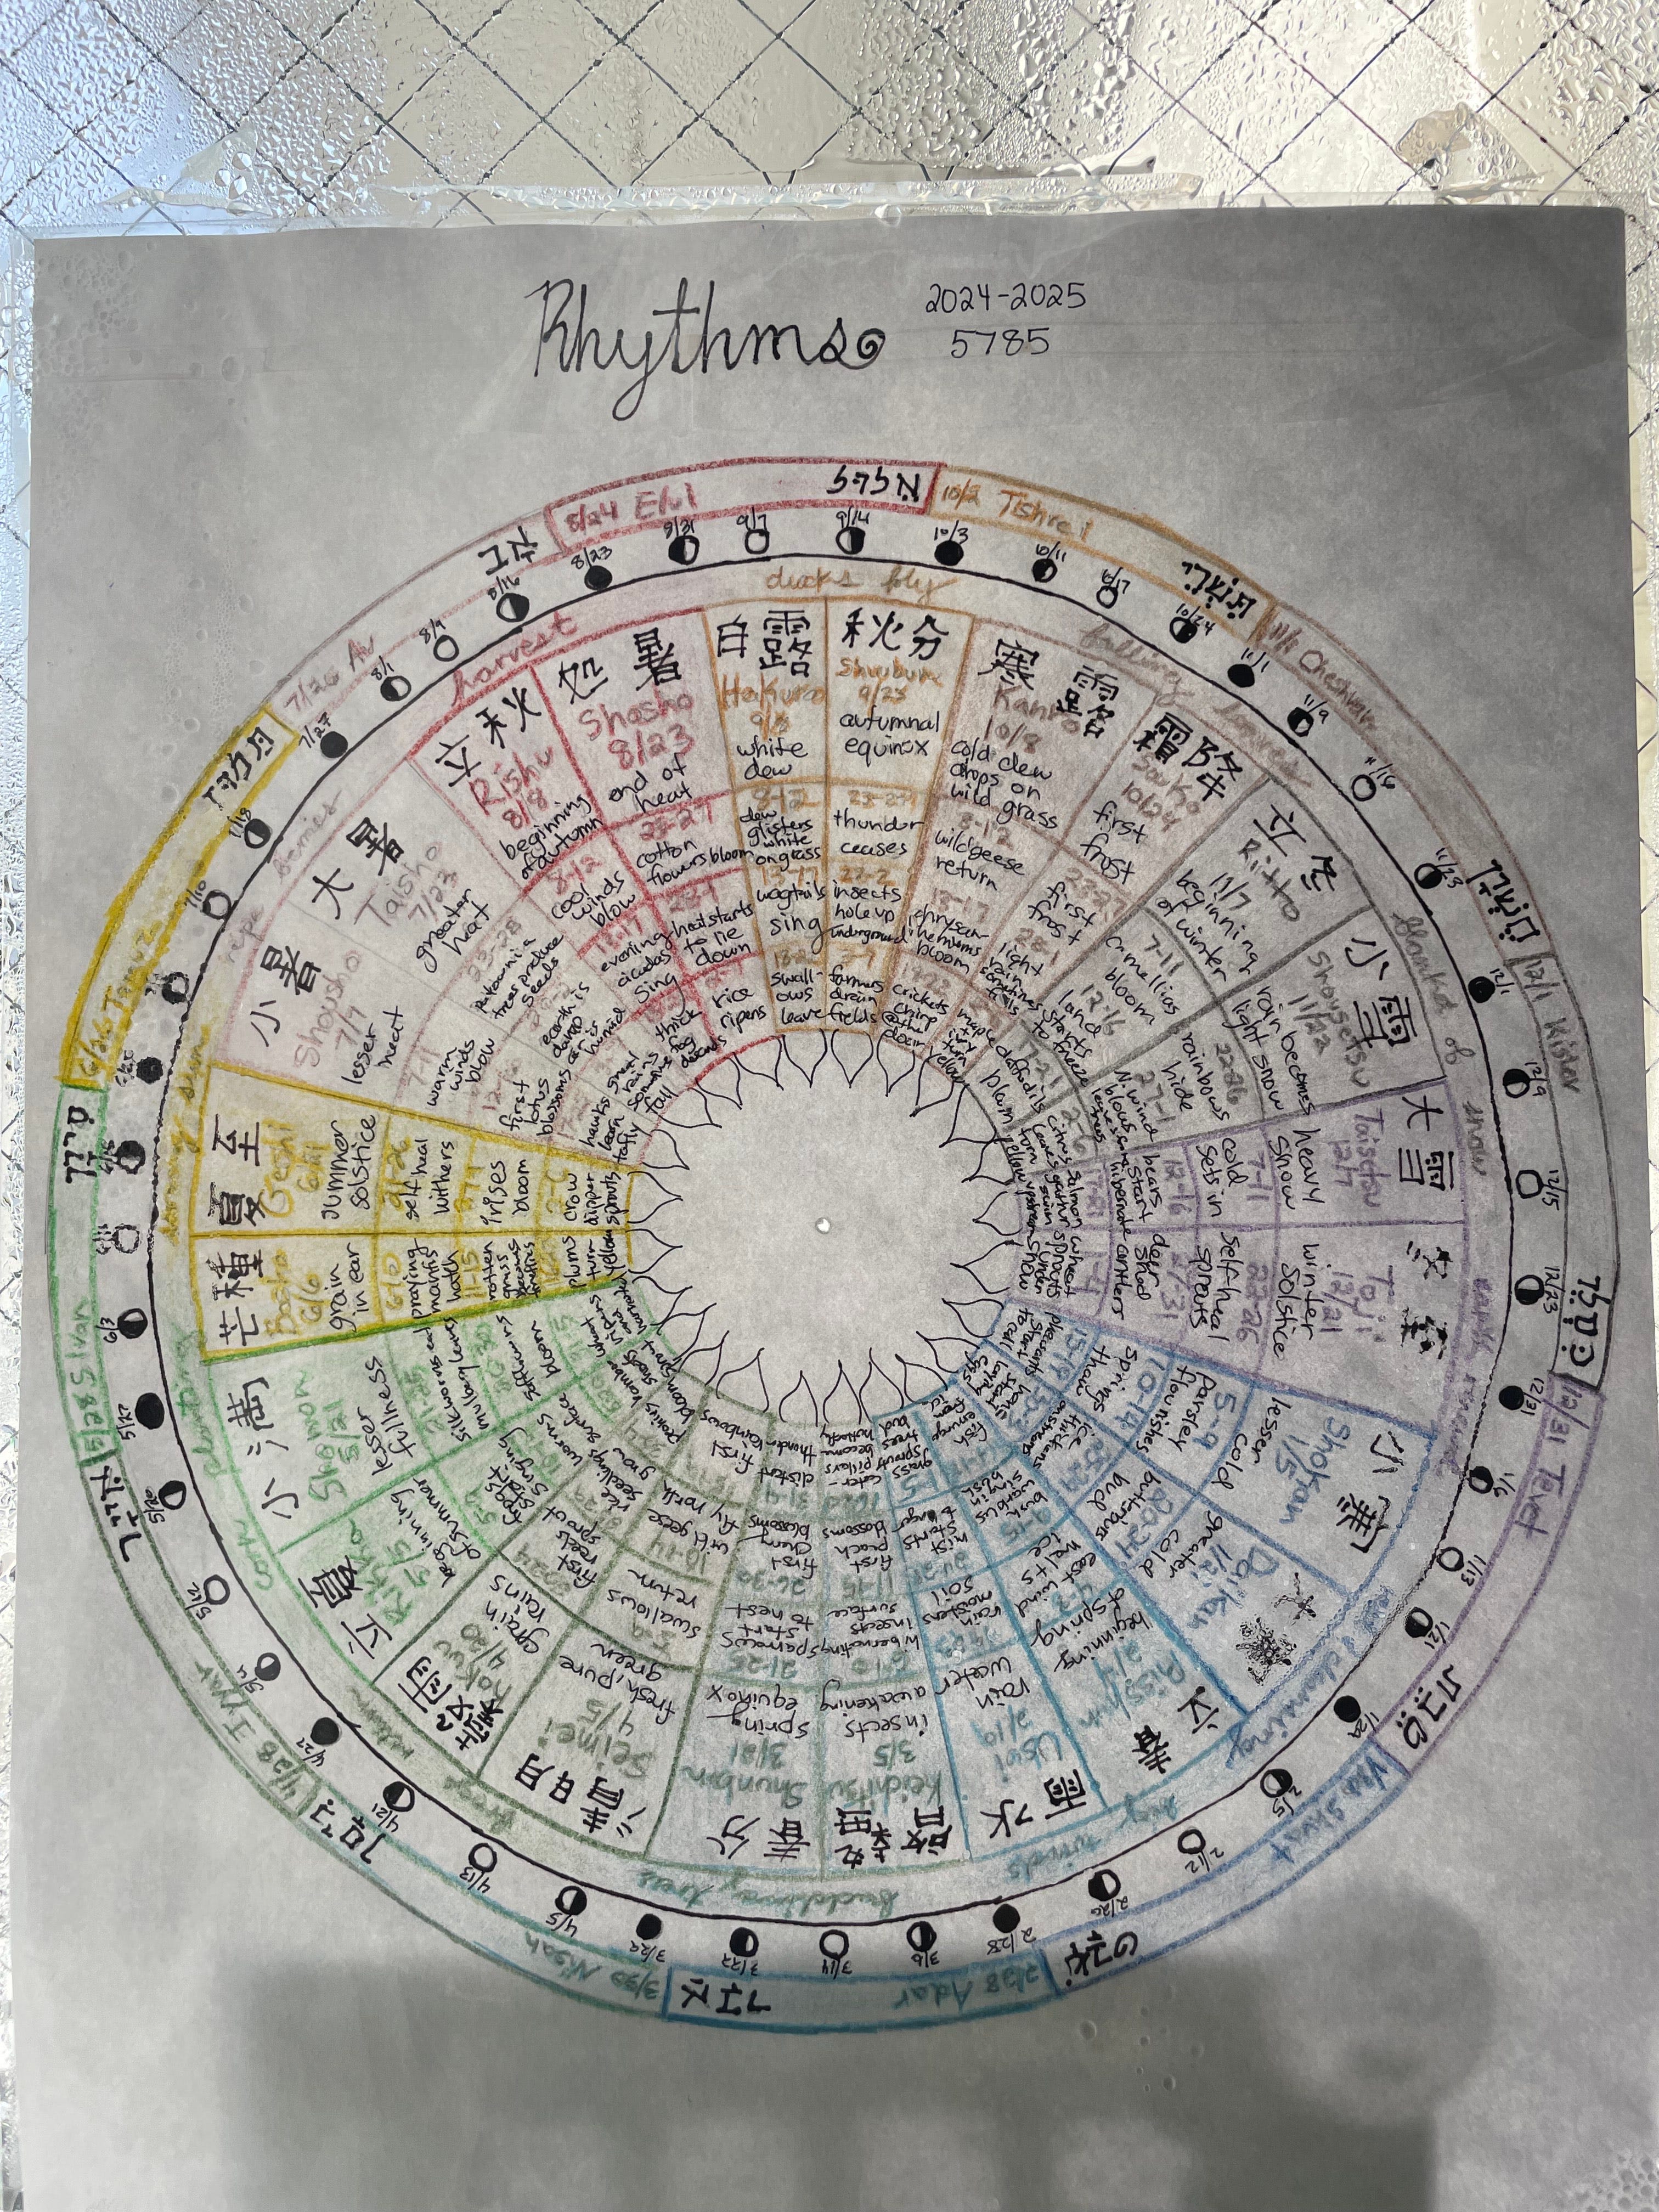 Rhythms
2024-2025
5785
10/2 Tishrei
תשרי
11/1 Cheshvan
חשון
12/1 Kislev
כסלו
12/31 Tevet
טבת
שבט
2/28 Adar
אדר
3/30 Nisan
ניסן
4/28 Iyar
אייר
5/28 Sivan
סיון
6/26 Tamuz
תמוז
7/26 Av
אב
8/24 Elul
אלול
10/3
10/11
10/17
10/24
11/1
11/9
11/16
11/23
12/1
12/9
12/15
12/23
12/31
1/6
1/13
1/21
1/29
2/5
2/12
2/20
2/28
3/6
3/14
3/22
3/29
4/5
4/13
4/21
4/27
5/4
5/12
5/20
5/27
6/3
6/11
6/25
7/10
7/27
8/1
8/9
8/16
8/23
8/31
9/7
9/14
ducks fly
falling leaves
blanket of snow
budding trees
winds
corn
berries
harvest
白露
Hakuro
9/8
white
dew
8-12
dew
glisters
white
on grass
13-17
wagtails
sing
swall-
ows
leave
秋分
Shubun
9/23
autumnal
equinox
23-27
thunder
ceases
insects
hole up
underground
3-7
farmers
drain
fields
寒露
Kanro
10/8
cold dew
drops on
wild grass
8-12
wild geese
return
13-17
chrysan-
themums
bloom
crickets
chirp
@ the
door
霜降
10/24
first
frost
23-27
first
frost
28-1
light
rain
sometimes
falls
maple
&
ivy
turn
yellow
立冬
Ritto
11/7
beginning
of winter
7-11
camellias
bloom
12-16
land
starts
to freeze
daffodils
bloom
小雪
Shousetsu
11/22
rain becomes
light snow
22-26
rainbows
hide
27-1
N. wind
blows
citrus
leaves
turn
yellow
大雪
12/7
heavy
snow
7-11
cold
sets in
12-16
bears
start
hibernate
salmon
gather
swim
upstream
Toji
12/21
winter
solstice
22-26
self-heal
sprouts
27-31
deer
shed
antlers
wheat
sprouts
under
snow
小寒
Shokan
1/5
lesser
cold
5-9
parsley
flourishes
10-14
springs
thaw
15-19
pheasants
start
to call
Daikan
greater
cold
20-24
butterburs
bud
ice
thickens
on streams
hens
start
laying
eggs
立春
Risshun
2/4
beginning
of spring
east wind
melts
ice
bush
warblers
sing in
fish
emerge
from
ice
雨水
Usui
2/19
rain
water
rain
moistens
soil
24-28
mist
starts
to linger
1-5
grass
sprouts
trees
bud
啓蟄
Keichitsu
3/5
insects
awakening
6-10
hibernating
insects
surface
11-15
first
peach
blossoms
cater-
pillars
become
butterfly
春分
Shunbun
3/21
spring
equinox
21-25
sparrows
start
to nest
26-30
first
cherry
blossoms
31-4
distant
thunder
清明
Seimei
4/5
fresh, pure
green
5-9
swallows
return
10-14
wild geese
fly north
first
rainbows
穀雨
Kokuu
4/20
grain
rains
20-24
first
reeds
sprout
rice
seedlings
grow
peonies
bloom
立夏
Rikka
5/5
beginning
of summer
frogs
start
singing
worms
surface
bamboo
shoots
sprout
小満
Shoman
5/21
lesser
fullness
21-25
silkworms eat
mulberry leaves
safflowers
bloom
芒種
Boshu
6/6
grain
in ear
6-10
praying
mantis
hatch
11-15
rotten
grass
becomes
fireflies
plums
turn
yellow
夏至
Geshi
6/21
summer
solstice
21-26
self heal
withers
27-1
irises
bloom
2-6
crow
dipper
sprouts
小暑
Shousho
7/7
lesser
heat
7-11
warm
winds
blow
first
lotus
blossoms
hawks
learn
to fly
大暑
Taisho
7/23
greater
heat
23-28
paulownia
trees produce
seeds
earth is
damp
air is
humid
great
rains
sometimes
fall
立秋
Rishu
8/8
beginning
of autumn
8-12
cool
winds
blow
13-17
evening
cicadas
sing
thick
fog
descends
処暑
Shosho
8/23
end of
heat
23-27
cotton
flowers bloom
heat starts
to lie
down
rice
ripens